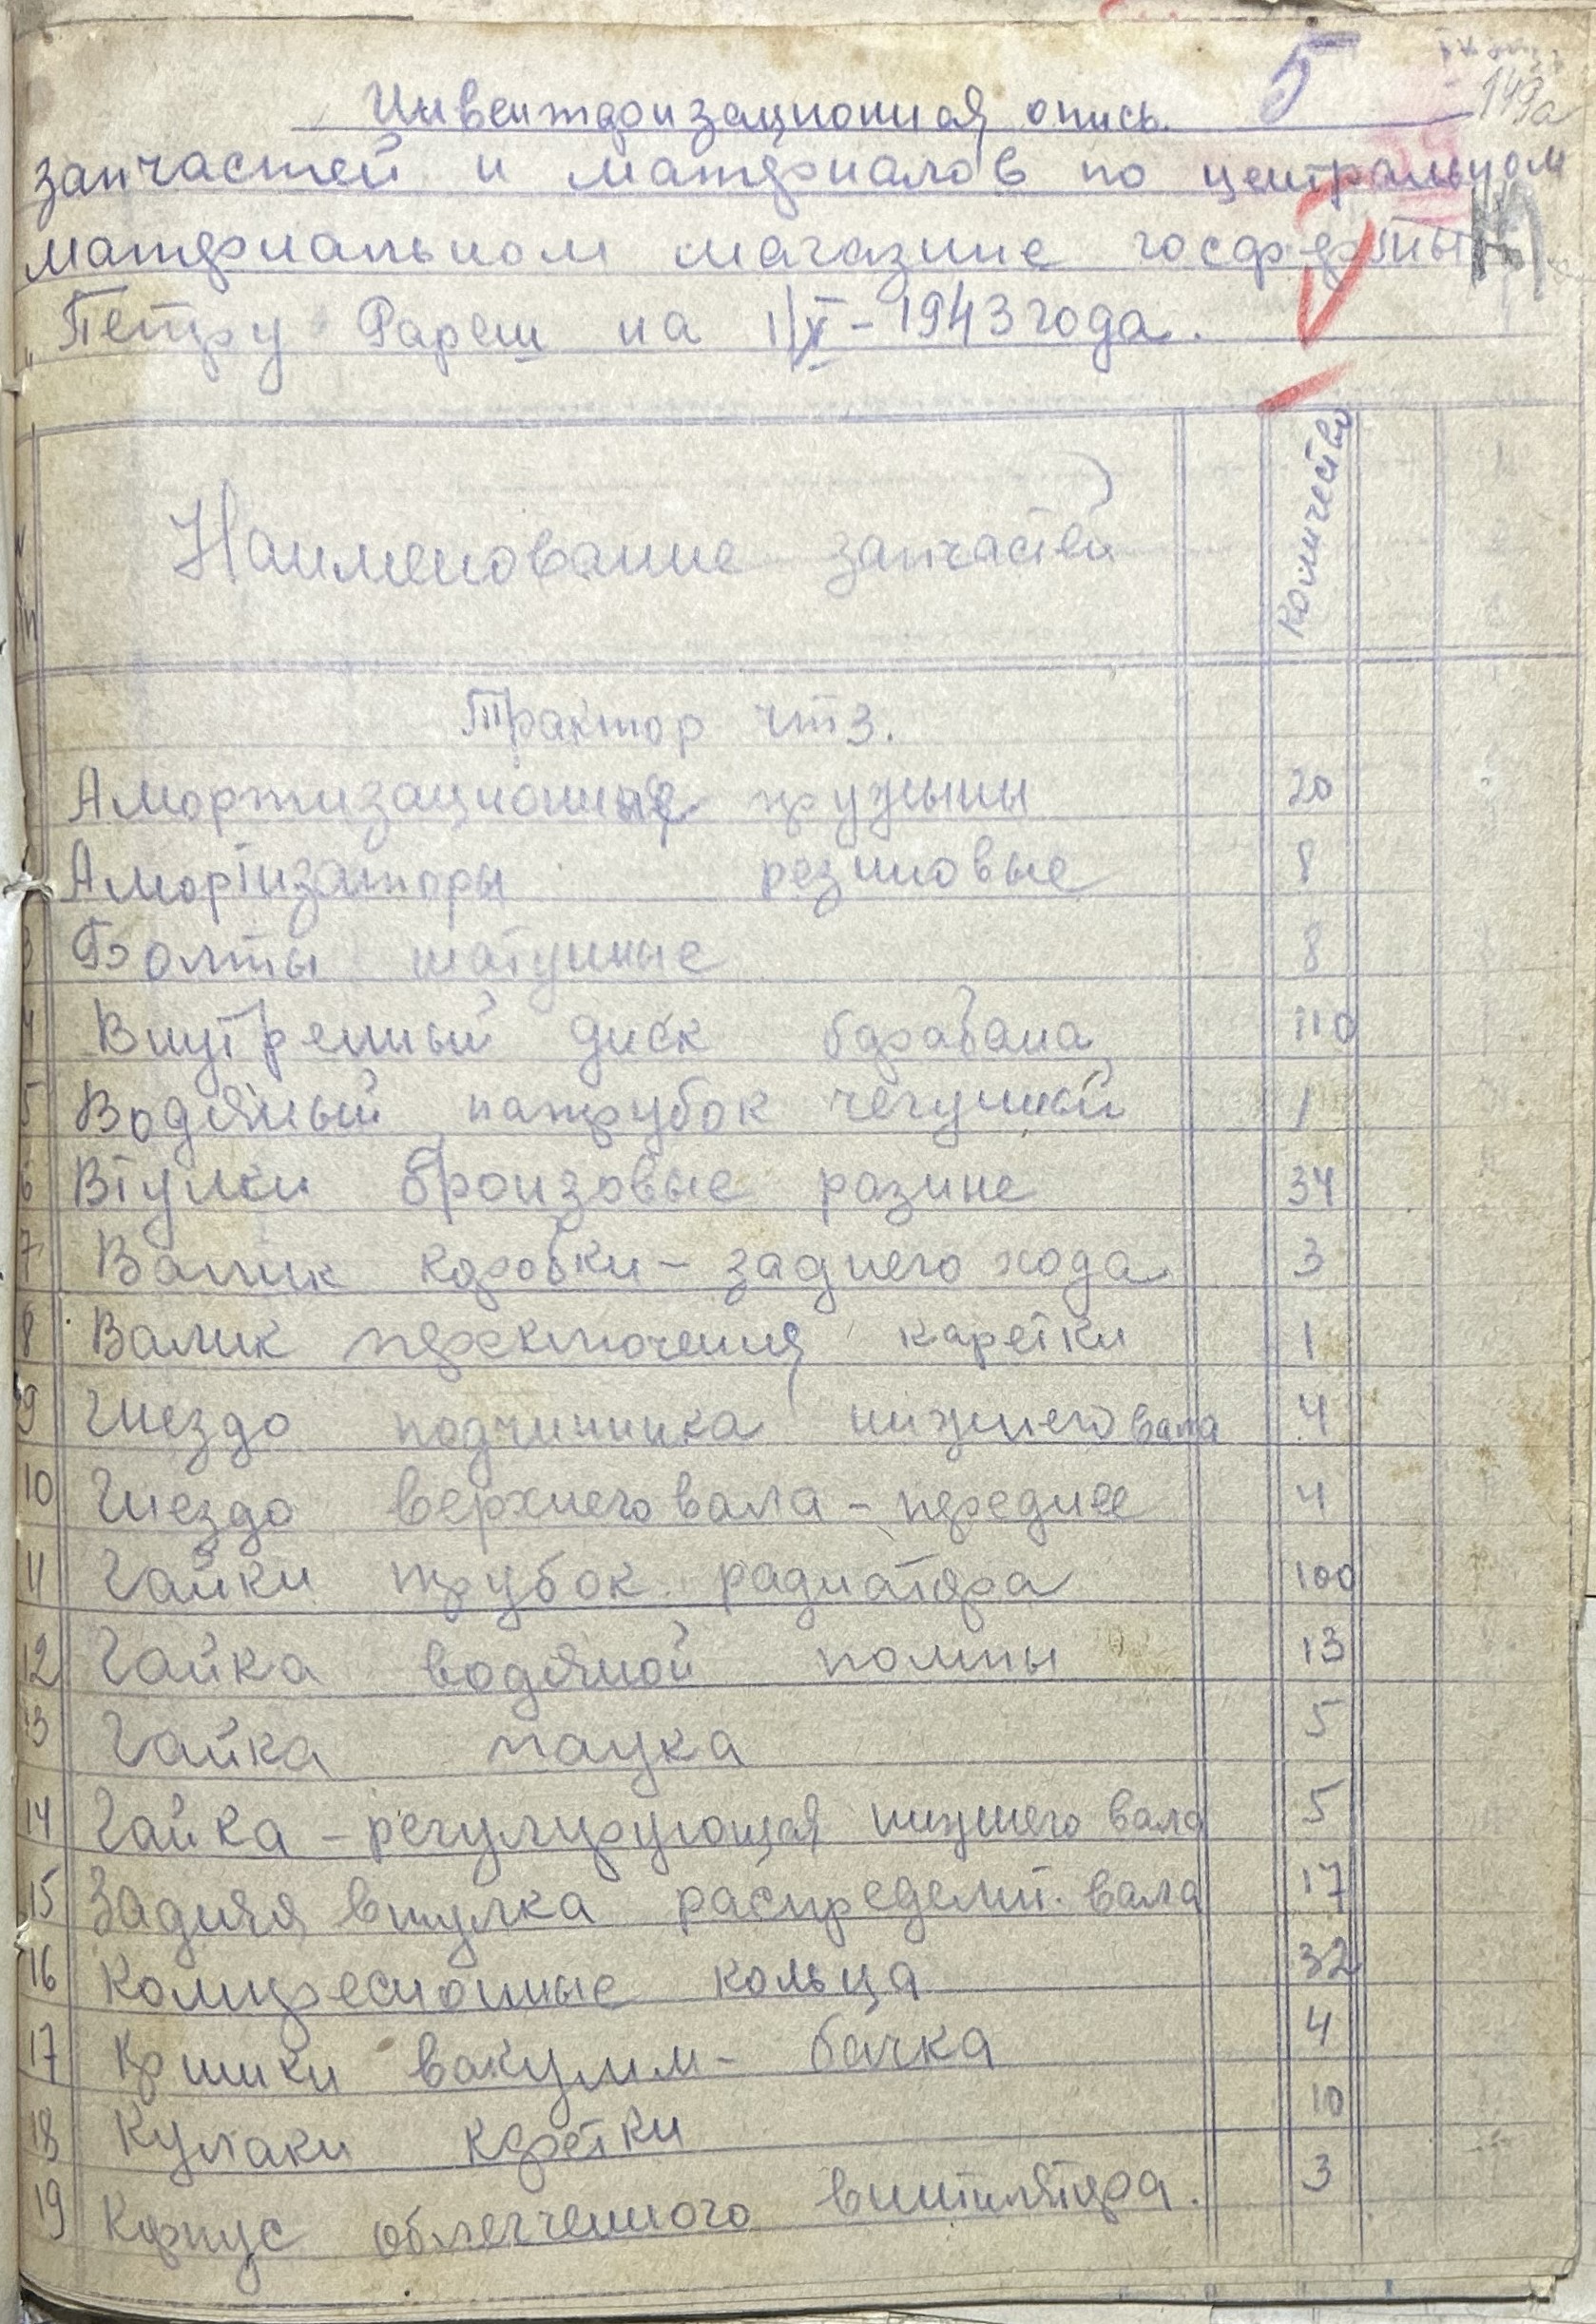 Инвентаризационная опись. 5 149а
запчастей и материалов по центральном
материальном магазине госфермы
"Петру Рареш на 1/X – 1943 года.
Наименование запчастей Количество
Трактор ЧТЗ.
Амортизационные пружыны 20
Амортизаторы резиновые 8
3 Болты шатунные 8
4 Внутренный диск барабана 110
5 Водяный патрубок чегунный 1
6 Втулки бронзовые разние 34
7 Валик коробки – заднего хода 3
8 Валик переключения каретки 1
9 Гнездо подчипника нижнего вала 4
10 Гнездо верхнего вала – переднее 4
11 Гайки трубок радиатора 100
12 Гайка водяной помпы 13
13 Гайка паука 5
14 Гайка – регулирующая нижнего вала 5
15 Задняя втулка распределит. вала 17
16 Компресионные кольца 32
17 вакуумм – бачка 4
18 Кулаки коретки 10
19 Корпус облегченного винтилятора. 3